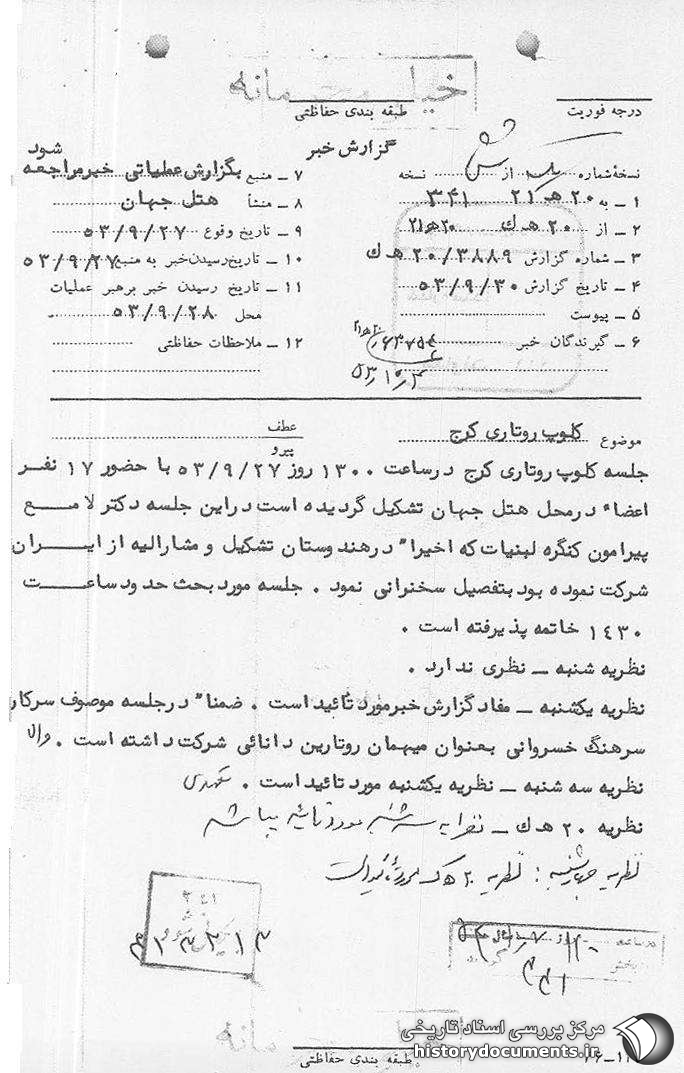 خیلی محرمانه
درجه فوریت
طبقه بندی حفاظتی
گزارش خبر
نسخهٔ شماره یک از شش نسخه
۱ ـ به ۲۰ هـ ۲۱ ۳۴۱
۲ ـ از ۲۰ هـ ک ۲۰ هـ ۲۱
۳ ـ شماره گزارش ۲۰/۳۸۸۹ هـ ک
۴ ـ تاریخ گزارش ۵۳/۹/۳۰
۵ ـ پیوست
۶ ـ گیرندگان خبر
۷ ـ منبع بگزارش عملیاتی خبر مراجعه شود
۸ ـ منشأ هتل جهان
۹ ـ تاریخ وقوع ۵۳/۹/۲۷
۱۰ ـ تاریخ رسیدن خبر به منبع ۵۳/۹/۲۷
۱۱ ـ تاریخ رسیدن خبر برهبر عملیات
محل ۵۳/۹/۲۸
۱۲ ـ ملاحظات حفاظتی
موضوع کلوپ روتاری کرج
عطف
پیرو
جلسه کلوپ روتاری کرج درساعت ۱۳۰۰ روز ۵۳/۹/۲۷ با حضور ۱۷ نفر
اعضاء درمحل هتل جهان تشکیل گردیده است دراین جلسه دکتر لامع
پیرامون کنگره لبنیات که اخیرا" درهندوستان تشکیل و مشارالیه از ایران
شرکت نموده بود بتفصیل سخنرانی نمود . جلسه مورد بحث حدود ساعت
۱٤۳۰ خاتمه پذیرفته است .
نظریه شنبه ـ نظری ندارد .
نظریه یکشنبه ـ مفاد گزارش خبر مورد تائید است . ضمنا" درجلسه موصوف سرکار
سرهنگ خسروانی بعنوان میهمان روتارین دانائی شرکت داشته است . والا
نظریه سه شنبه ـ نظریه یکشنبه مورد تائید است .
نظریه ۲۰ هـ ک ـ نظریه سه شنبه مورد تائید میباشد
نظریه چهارشنبه : نظریه ۲۰ هـ ک مورد تائید است
۳۴۱
خیلی محرمانه
طبقه بندی حفاظتی
مرکز بررسی اسناد تاریخی
historydocuments.ir